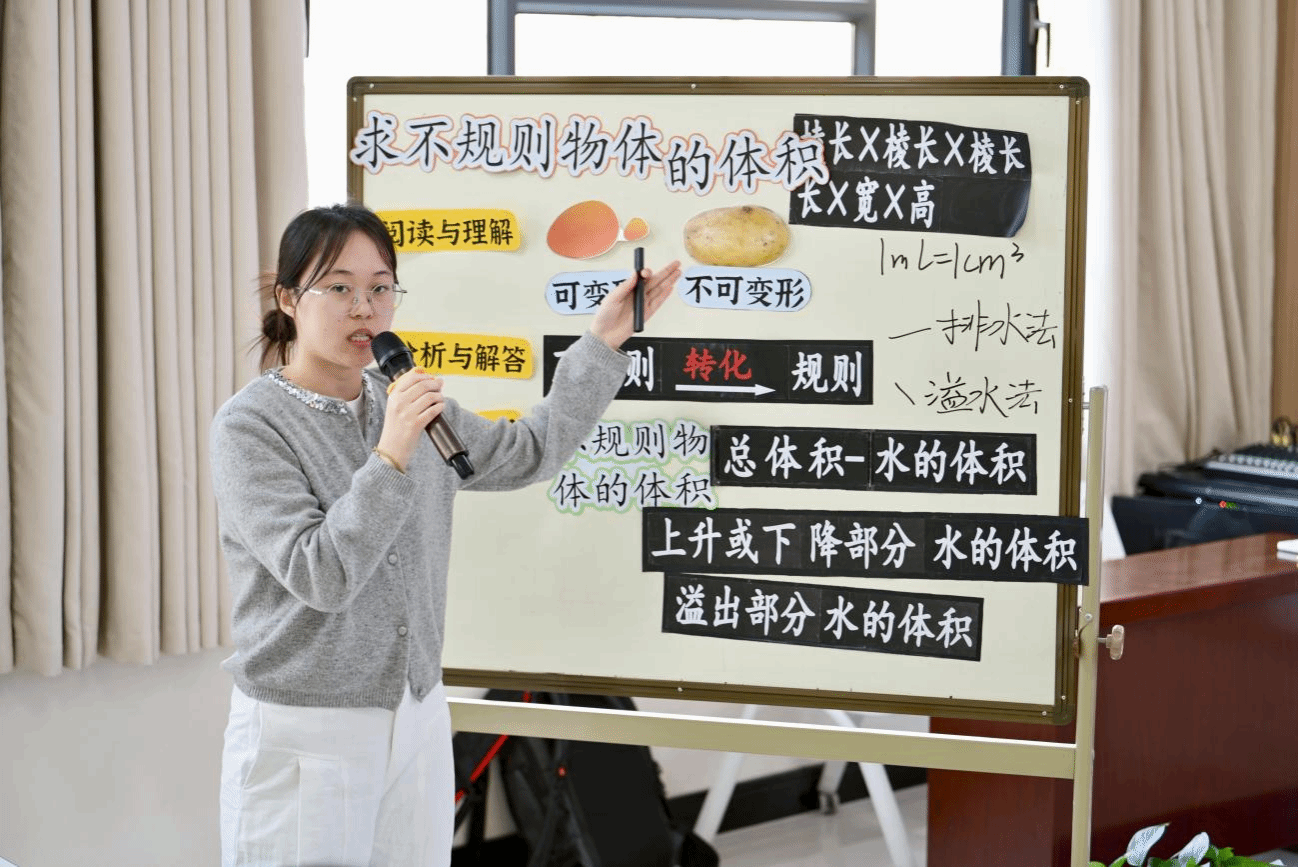 求不规则物体的体积
棱长×棱长×棱长
长×宽×高
阅读与理解
可变形
不可变形
1mL=1cm³
排水法
分析与解答
规则
转化
规则
溢水法
不规则物
体的体积
总体积-水的体积
上升或下降部分 水的体积
溢出部分水的体积